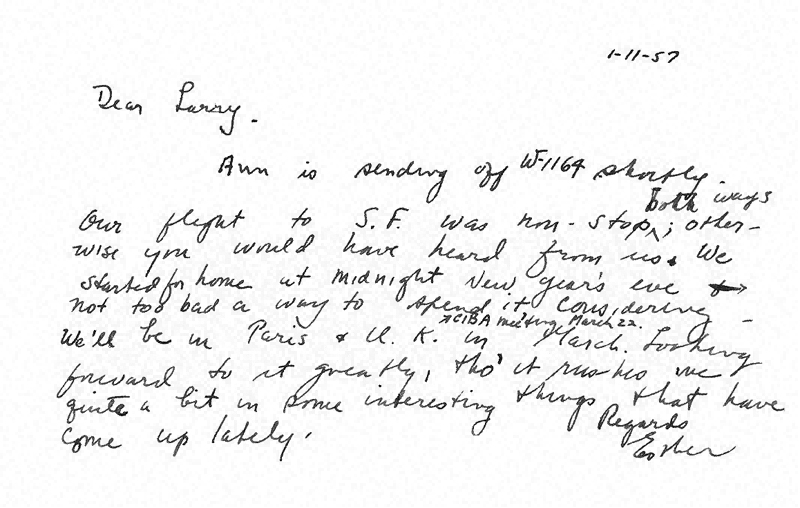 1-11-57
Dear Larry.
Ann is sending off W-1164 shortly.
both ways
Our flight to S.F. was non-stop ^; other-
wise you would have heard from us. We
started for home at midnight New Year's eve
not too bad a way to spend it considering -
CIBA meeting March 22.
We'll be in Paris & U.K. in March. Looking
forward to it greatly, tho' it rushes me
quite a bit in some interesting things that have
come up lately.
Regards
Esther